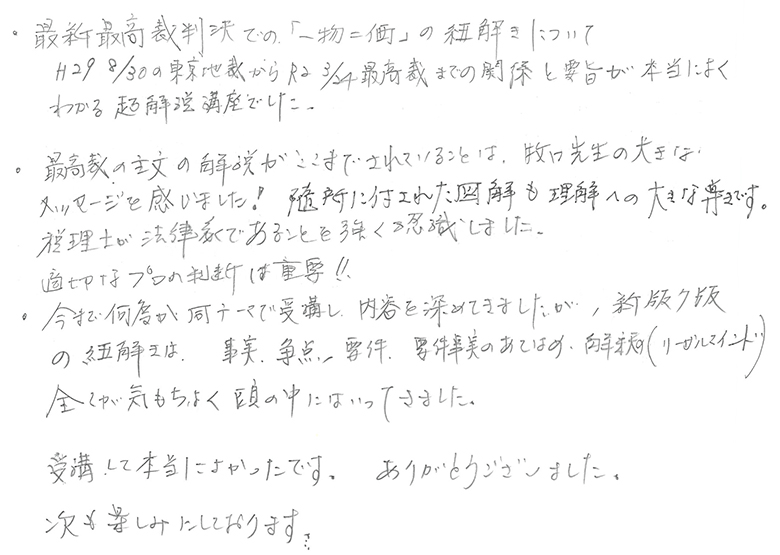 ・最新最高裁判決での「一物二価」の紐解きについて
H29 8/30の東京地裁からR2 3/24最高裁までの関係と要旨が本当によく
わかる超解説講座でした。
・最高裁の主文の解説がここまでされていることは、牧口先生の大きな
メッセージを感じました！随所に付された図解も理解への大きな導きです。
税理士が法律家であることを強く認識しました。
適切なプロの判断は重要!!
・今まで何度か同テーマで受講し、内容を深めてきましたが、新版7版
の紐解きは、事実、争点、要件、要件事実のあてはめ、解釈(リーガルマインド)
全てが気もちよく頭の中にはいってきました。
受講して本当によかったです。ありがとうございました。
次も楽しみにしております。